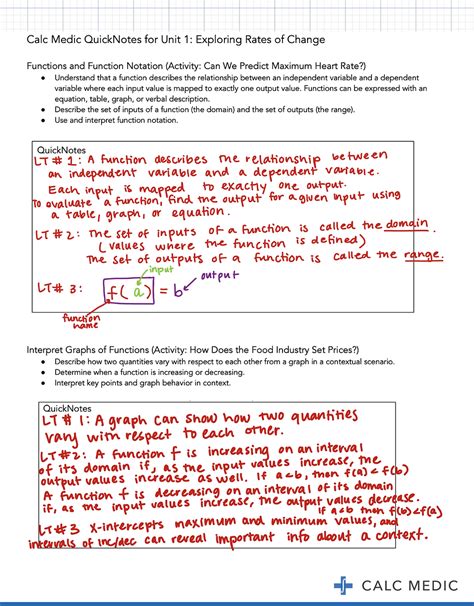 Calc Medic QuickNotes for Unit 1: Exploring Rates of Change
Functions and Function Notation (Activity: Can We Predict Maximum Heart Rate?)
● Understand that a function describes the relationship between an independent variable and a dependent
variable where each input value is mapped to exactly one output value. Functions can be expressed with an
equation, table, graph, or verbal description.
● Describe the set of inputs of a function (the domain) and the set of outputs (the range).
● Use and interpret function notation.
QuickNotes
LT# 1: A function describes the relationship between
an independent variable and a dependent variable.
Each input is mapped to exactly one output.
To evaluate a function, find the output for a given input using
a table, graph, or equation.
LT# 2: The set of inputs of a function is called the domain.
(values where the function is defined)
The set of outputs of a function is called the range.
input
output
LT# 3: f(a) = b
function
name
Interpret Graphs of Functions (Activity: How Does the Food Industry Set Prices?)
● Describe how two quantities vary with respect to each other from a graph in a contextual scenario.
● Determine when a function is increasing or decreasing.
● Interpret key points and graph behavior in context.
QuickNotes
LT# 1: A graph can show how two quantities
vary with respect to each other.
LT#2: A function f is increasing on an interval
of its domain if, as the input values increase, the
output values increase as well. If a<b, then f(a)<f(b)
A function f is decreasing on an interval of its domain
if, as the input values increase, the output values decrease.
If a<b then f(b)<f(a)
LT#3 x-intercepts maximum and minimum values, and
intervals of inc/dec can reveal important info about a context.
CALC MEDIC